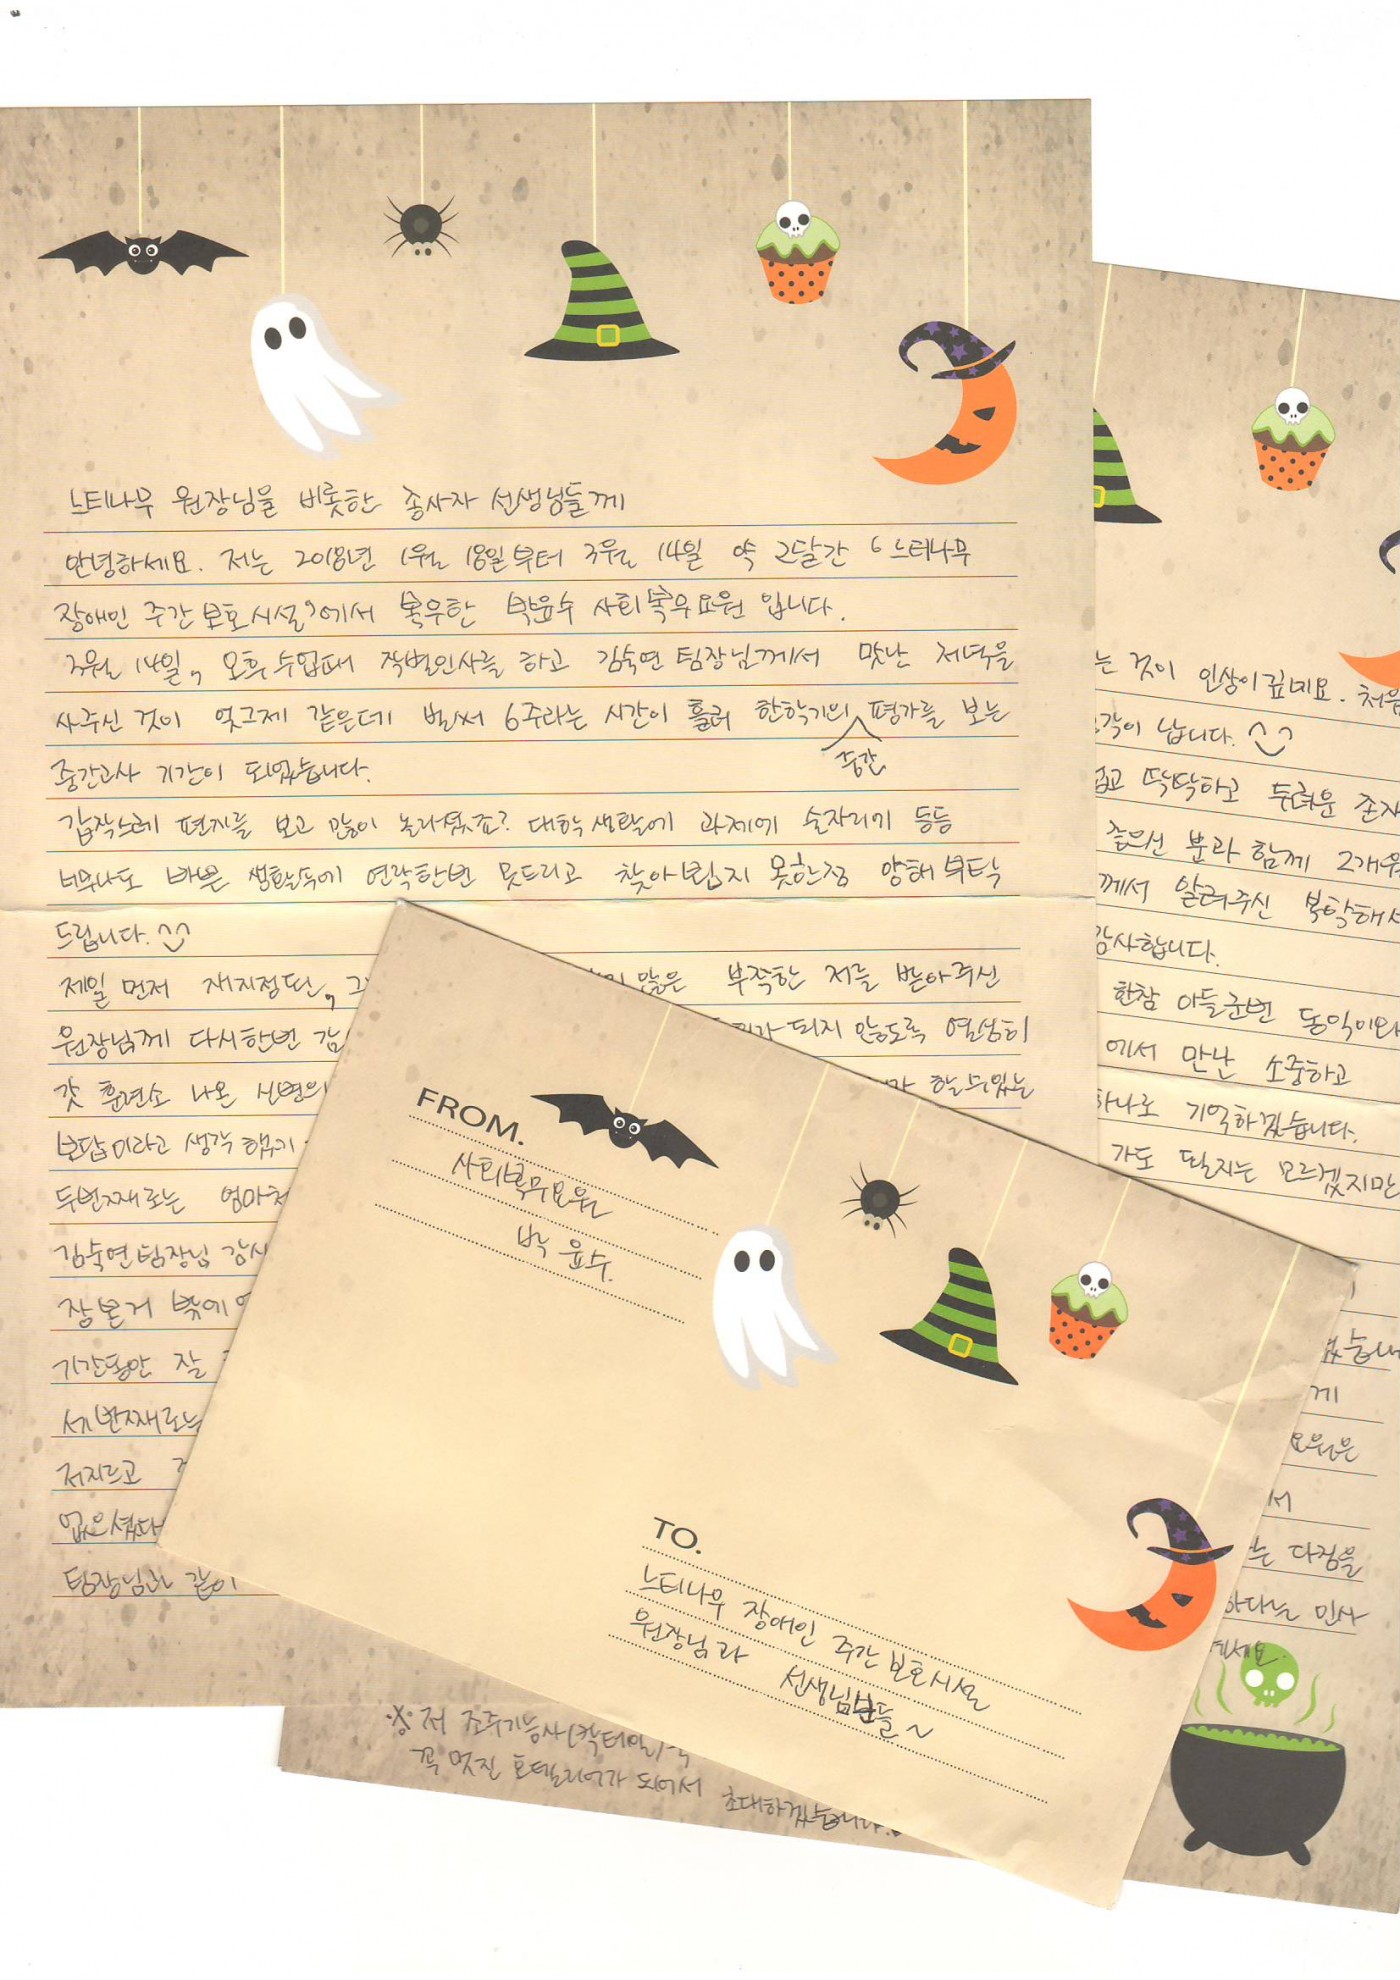 느티나무 원장님을 비롯한 종사자 선생님들께
안녕하세요. 저는 2018년 1월 18일부터 3월 14일 약 2달간 '느티나무
장애인 주간보호시설'에서 복무한 박윤수 사회복무요원 입니다.
3월 14일, 오후수업때 작별인사를 하고 김숙연팀장님께서 맛난 저녁을
사주신 것이 엊그제 같은데 벌써 6주라는 시간이 흘러 한학기의 중간 평가를 보는
중간고사 기간이 되었습니다.
갑작스레 편지를 보고 많이 놀라셨죠? 대학생활에 과제에 술자리에 등등
너무나도 바쁜 생활속에 연락한번 못드리고 찾아뵙지 못한점 양해부탁
드립니다. ^^
제일 먼저 재지정된, 많은 부족한 저를 받아주신
원장님께 다시한번 감 되지 않도록 열심히
갓 훈련소 나온 신병의 할수있는
보답이라고 생각했기
두번째로는 엄마처
김숙연팀장님 감사
잠본거 밖에
기간동안 잘
세번째로는
저지르고
없으셨다
팀장님과 같이
는 것이 인상이 깊네요. 처음
생각이 납니다. ^^
없고 딱딱하고 두려운 존재
좋으신 분과 함께 2개월
께서 알려주신 복학해서
감사합니다.
한참 아들군번 동익이와
에서 만난 소중하고
하나로 기억하겠습니다.
가도 될지는 모르겠지만
습니다
게
요원은
서
는 다정을
하다는 인사
계세요.
FROM.
사회복무요원
박윤수.
TO.
느티나무 장애인 주간보호시설
원장님과 선생님분들~
※ 저 조주기능사(칵테일)
꼭 멋진 호텔리어가 되어서 초대하겠습니다.